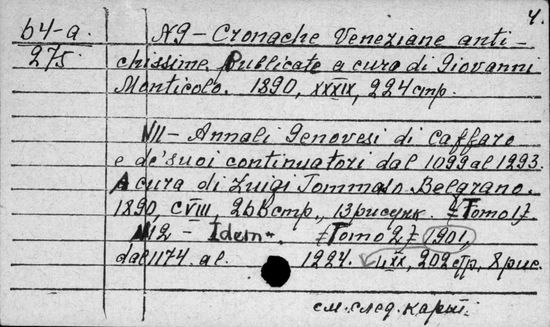 4.
64-a.
275.
N9 – Cronache Veneziane anti-
chissime, Publicate a cura di Giovanni
Monticolo. 1890, XXXIX, 224 стр.
N11 – Annali Genovesi di Caffaro
e de' suoi continuatori dal 1099 al 1293.
A cura di Luigi Tommaso Belgrano.
1890, CVIII, 266 стр., 13 рисунк. [Tomo 1]
N12 – Idem. [Tomo 2] 1901,
dal 1174 al 1224. 202 стр, 8 рис.
см. след. карт.